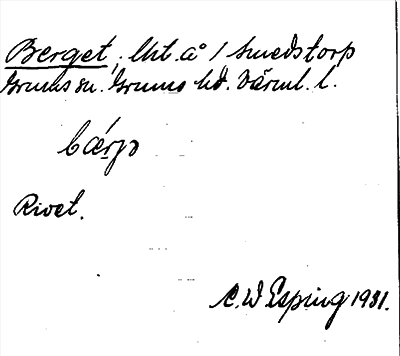 Berget, lht. å 1 Smedstorp
Grums sn. Grums hd. Värml. l.
bærjə
Rivet.
C. W Esping 1931.